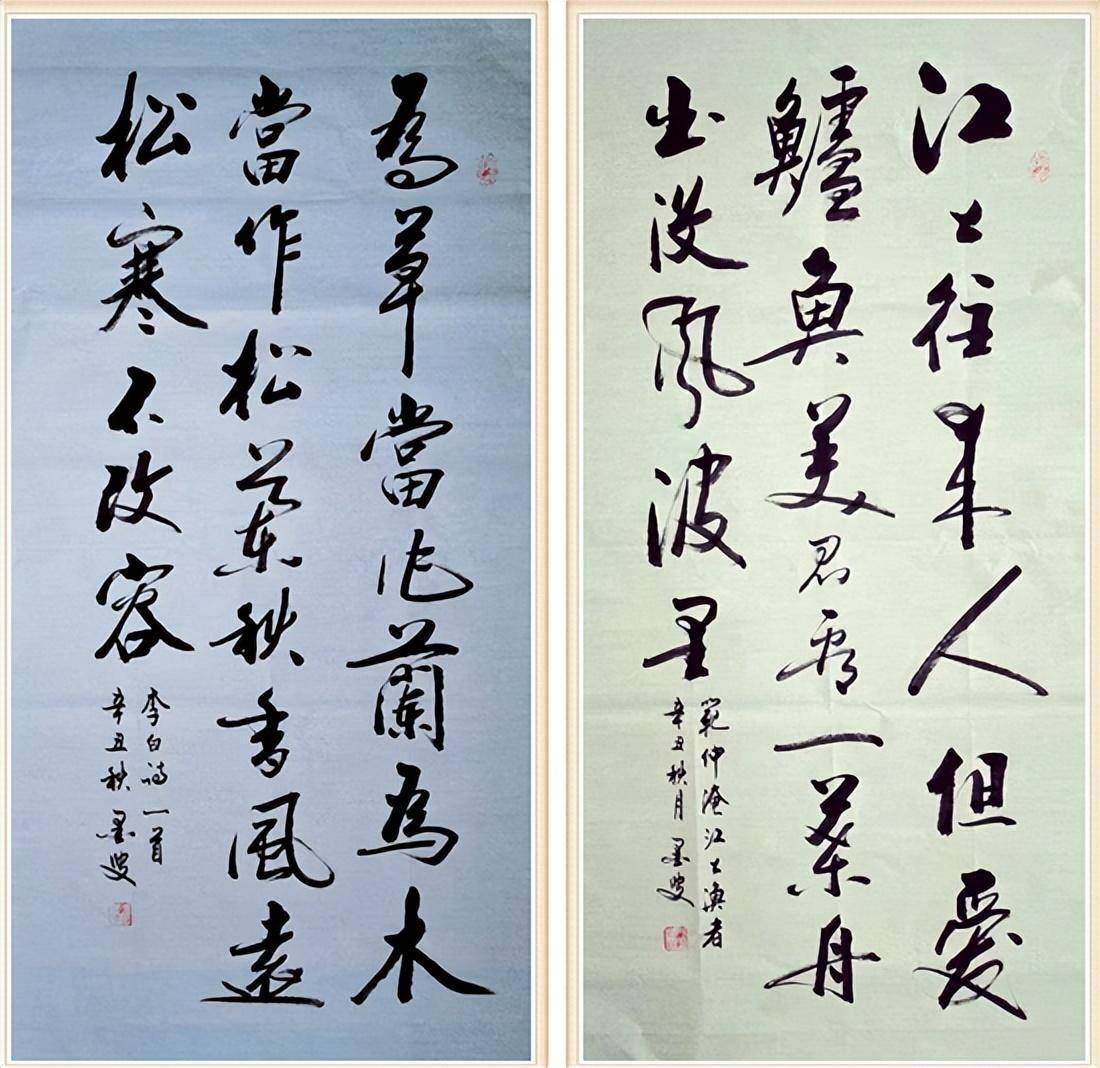 為草當作蘭為木
當作松蘭秋香風遠
松寒不改容
李白詩一首
辛丑秋墨叟
江上往来人但愛
鱸魚美君看一葉舟
出没風波里
範仲淹江上漁者
辛丑秋月墨叟